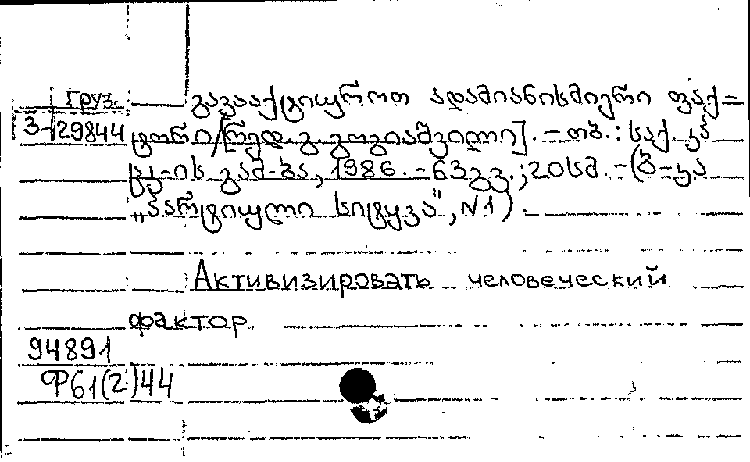 Груз.
3-29844
გავააქტიუროთ ადამიანისმიერი ფაქ-
ტორი/[რედ. გ. გოგიაშვილი]. - თბ. : საქ. კპ
ცკ-ის გამ-ბა, 1986. - 63გვ.; 20სმ. - (ბ-კა
„პარტიული სიტყვა", N1)
Активизировать человеческий
фактор
94891
Ф61(2)44